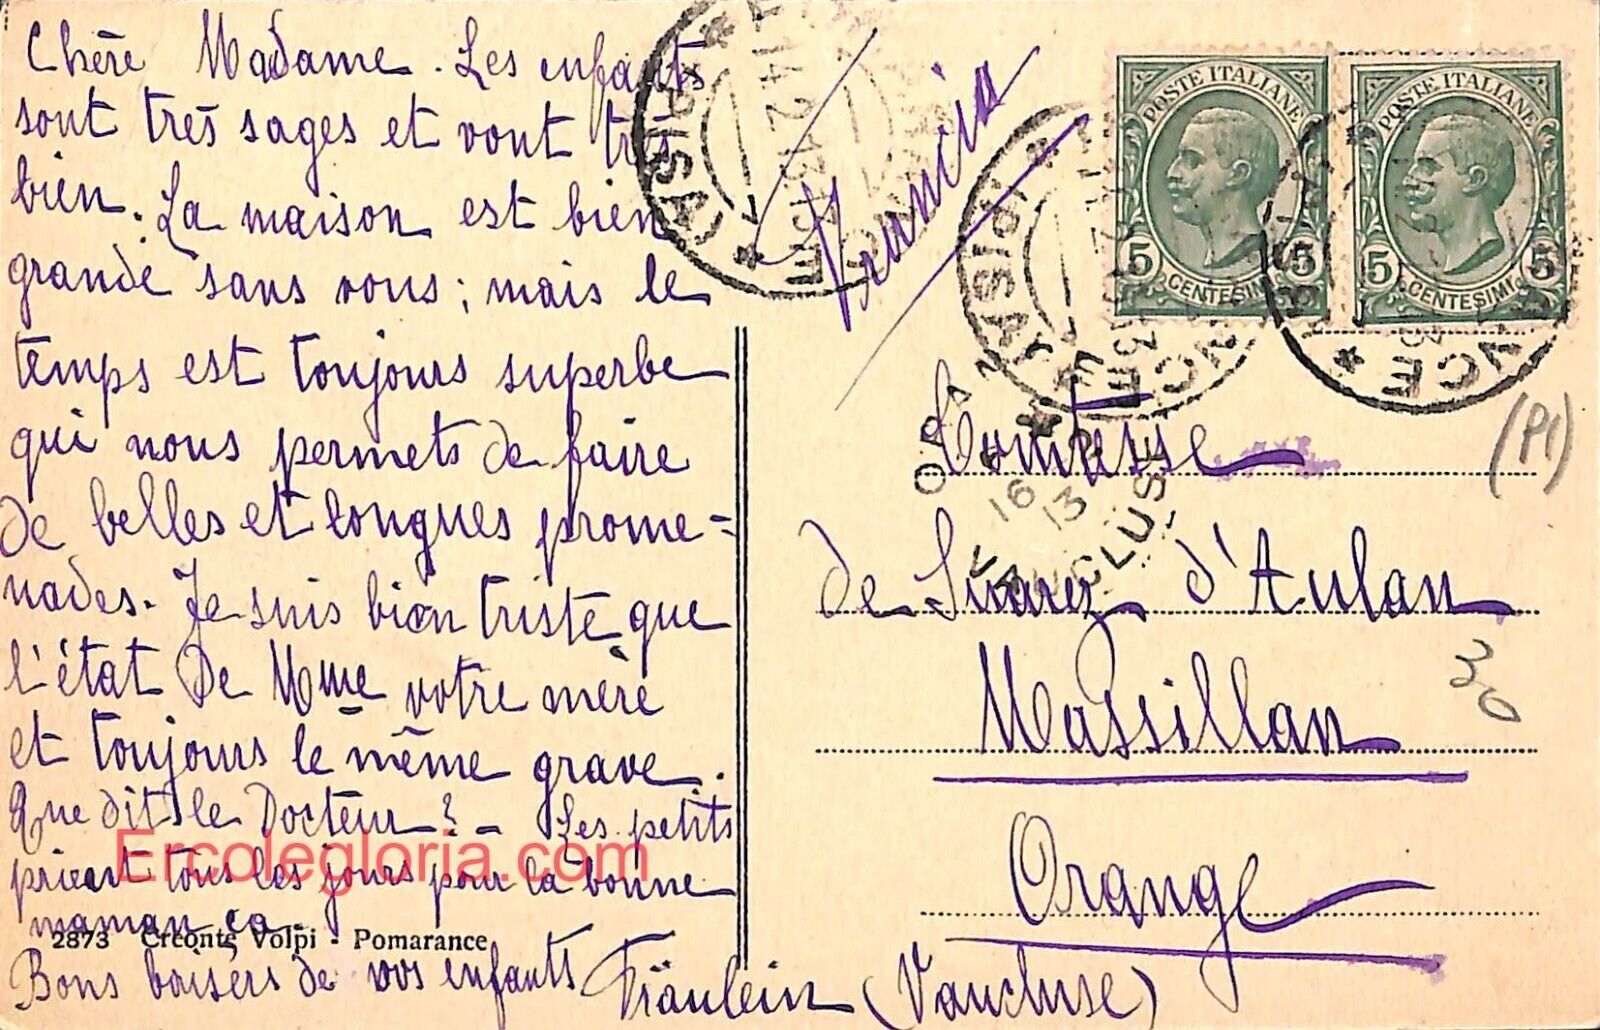 Chère Madame. Les enfants
sont très sages et vont très
bien. La maison est bien
grande sans vous; mais le
temps est toujours superbe
qui nous permets de faire
de belles et longues prome=
nades. Je suis bien triste que
l'état de Mme votre mère
et toujours le même grave.
Que dit le Docteur? - Les petits
prient tous les jours pour la bonne
maman ça.
2873 Volpi - Pomarance
Bons baisers de vos enfants
Fräulein
Francia
POSTE ITALIANE
5 CENTESIMI 5
POSTE ITALIANE
5 CENTESIMI 5
(PI)
Comtesse
de Suarez d'Aulan
Massillan
Orange
(Vaucluse)
30
16
13
VAUCLUSE
Ercolegloria.com